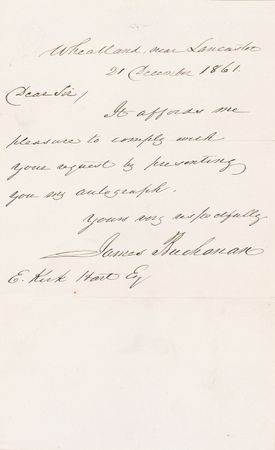 Wheatland, near Lancaster
21 December 1861.
Dear Sir,
It affords me
pleasure to comply with
your request by presenting
you my autograph.
Yours very respectfully
James Buchanan
E. Kirk Hart Esq